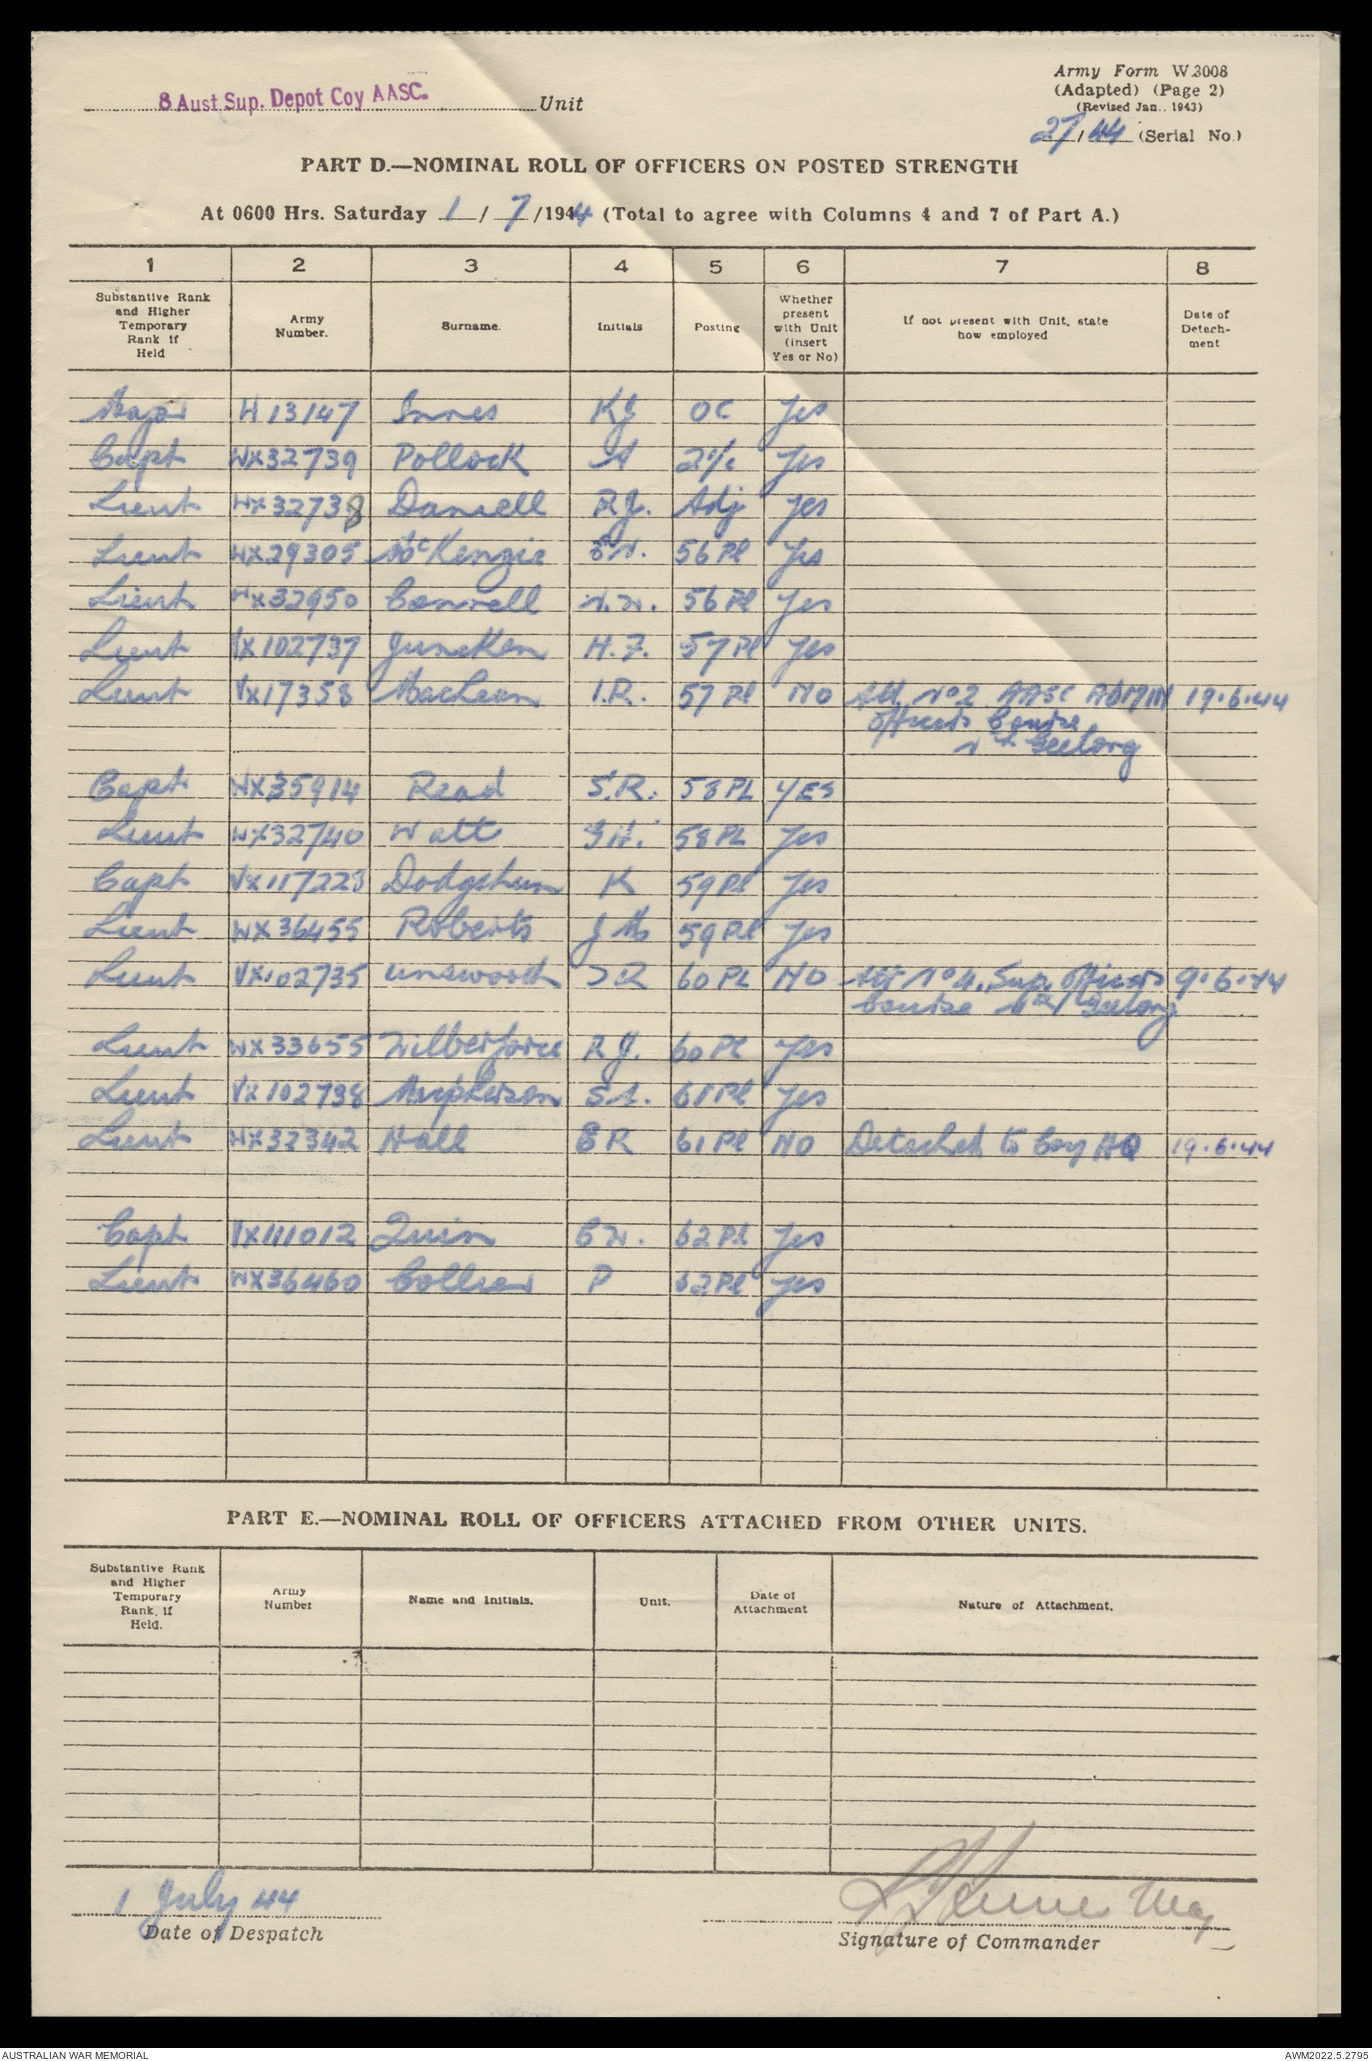 8 Aust Sup. Depot Coy AASC. Unit
Army Form W.3008
(Adapted) (Page 2)
(Revised Jan., 1943)
27/44 (Serial No.)
PART D.—NOMINAL ROLL OF OFFICERS ON POSTED STRENGTH
At 0600 Hrs. Saturday 1/7/1944 (Total to agree with Columns 4 and 7 of Part A.)
1 2 3 4 5 6 7 8
Substantive Rank and Higher Temporary Rank if Held
Army Number.
Surname.
Initials
Posting
Whether present with Unit (insert Yes or No)
If not present with Unit, state how employed
Date of Detach-ment
Major H13147 Innes KJ OC Yes
Capt WX32739 Pollock A 2i/c Yes
Lieut WX32738 Daniell R.J. Adj Yes
Lieut WX29305 McKenzie 56 Pl Yes
Lieut WX32950 56 Pl Yes
Lieut VX102737 Juncken H.F. 57 Pl Yes
Lieut VX17358 MacLean I.R. 57 Pl NO Att No 2 AASC ADMIN 19.6.44
Officers Course
Geelong
Capt WX35914 Read S.R. 58 PL YES
Lieut WX32740 Watt G.H. 58 PL Yes
Capt VX117228 Dodgshun K 59 Pl Yes
Lieut WX36455 Roberts J M 59 Pl Yes
Lieut VX102735 Unsworth 60 PL NO Att No 4. Sup. Officers 9.6.44
Course Geelong
Lieut WX33655 Wilberforce R J. 60 Pl Yes
Lieut VX102738 Macpherson S.A. 61 Pl Yes
Lieut WX32342 Hall 61 Pl NO Detached to Coy HQ 19.6.44
Capt VX111012 Quin 62 Pl Yes
Lieut WX36460 Collier P 62 Pl Yes
PART E.—NOMINAL ROLL OF OFFICERS ATTACHED FROM OTHER UNITS.
Substantive Rank and Higher Temporary Rank, if Held.
Army Number
Name and Initials.
Unit.
Date of Attachment
Nature of Attachment.
1 July 44
Date of Despatch
Innes Maj
Signature of Commander
AUSTRALIAN WAR MEMORIAL
AWM2022.5.2795